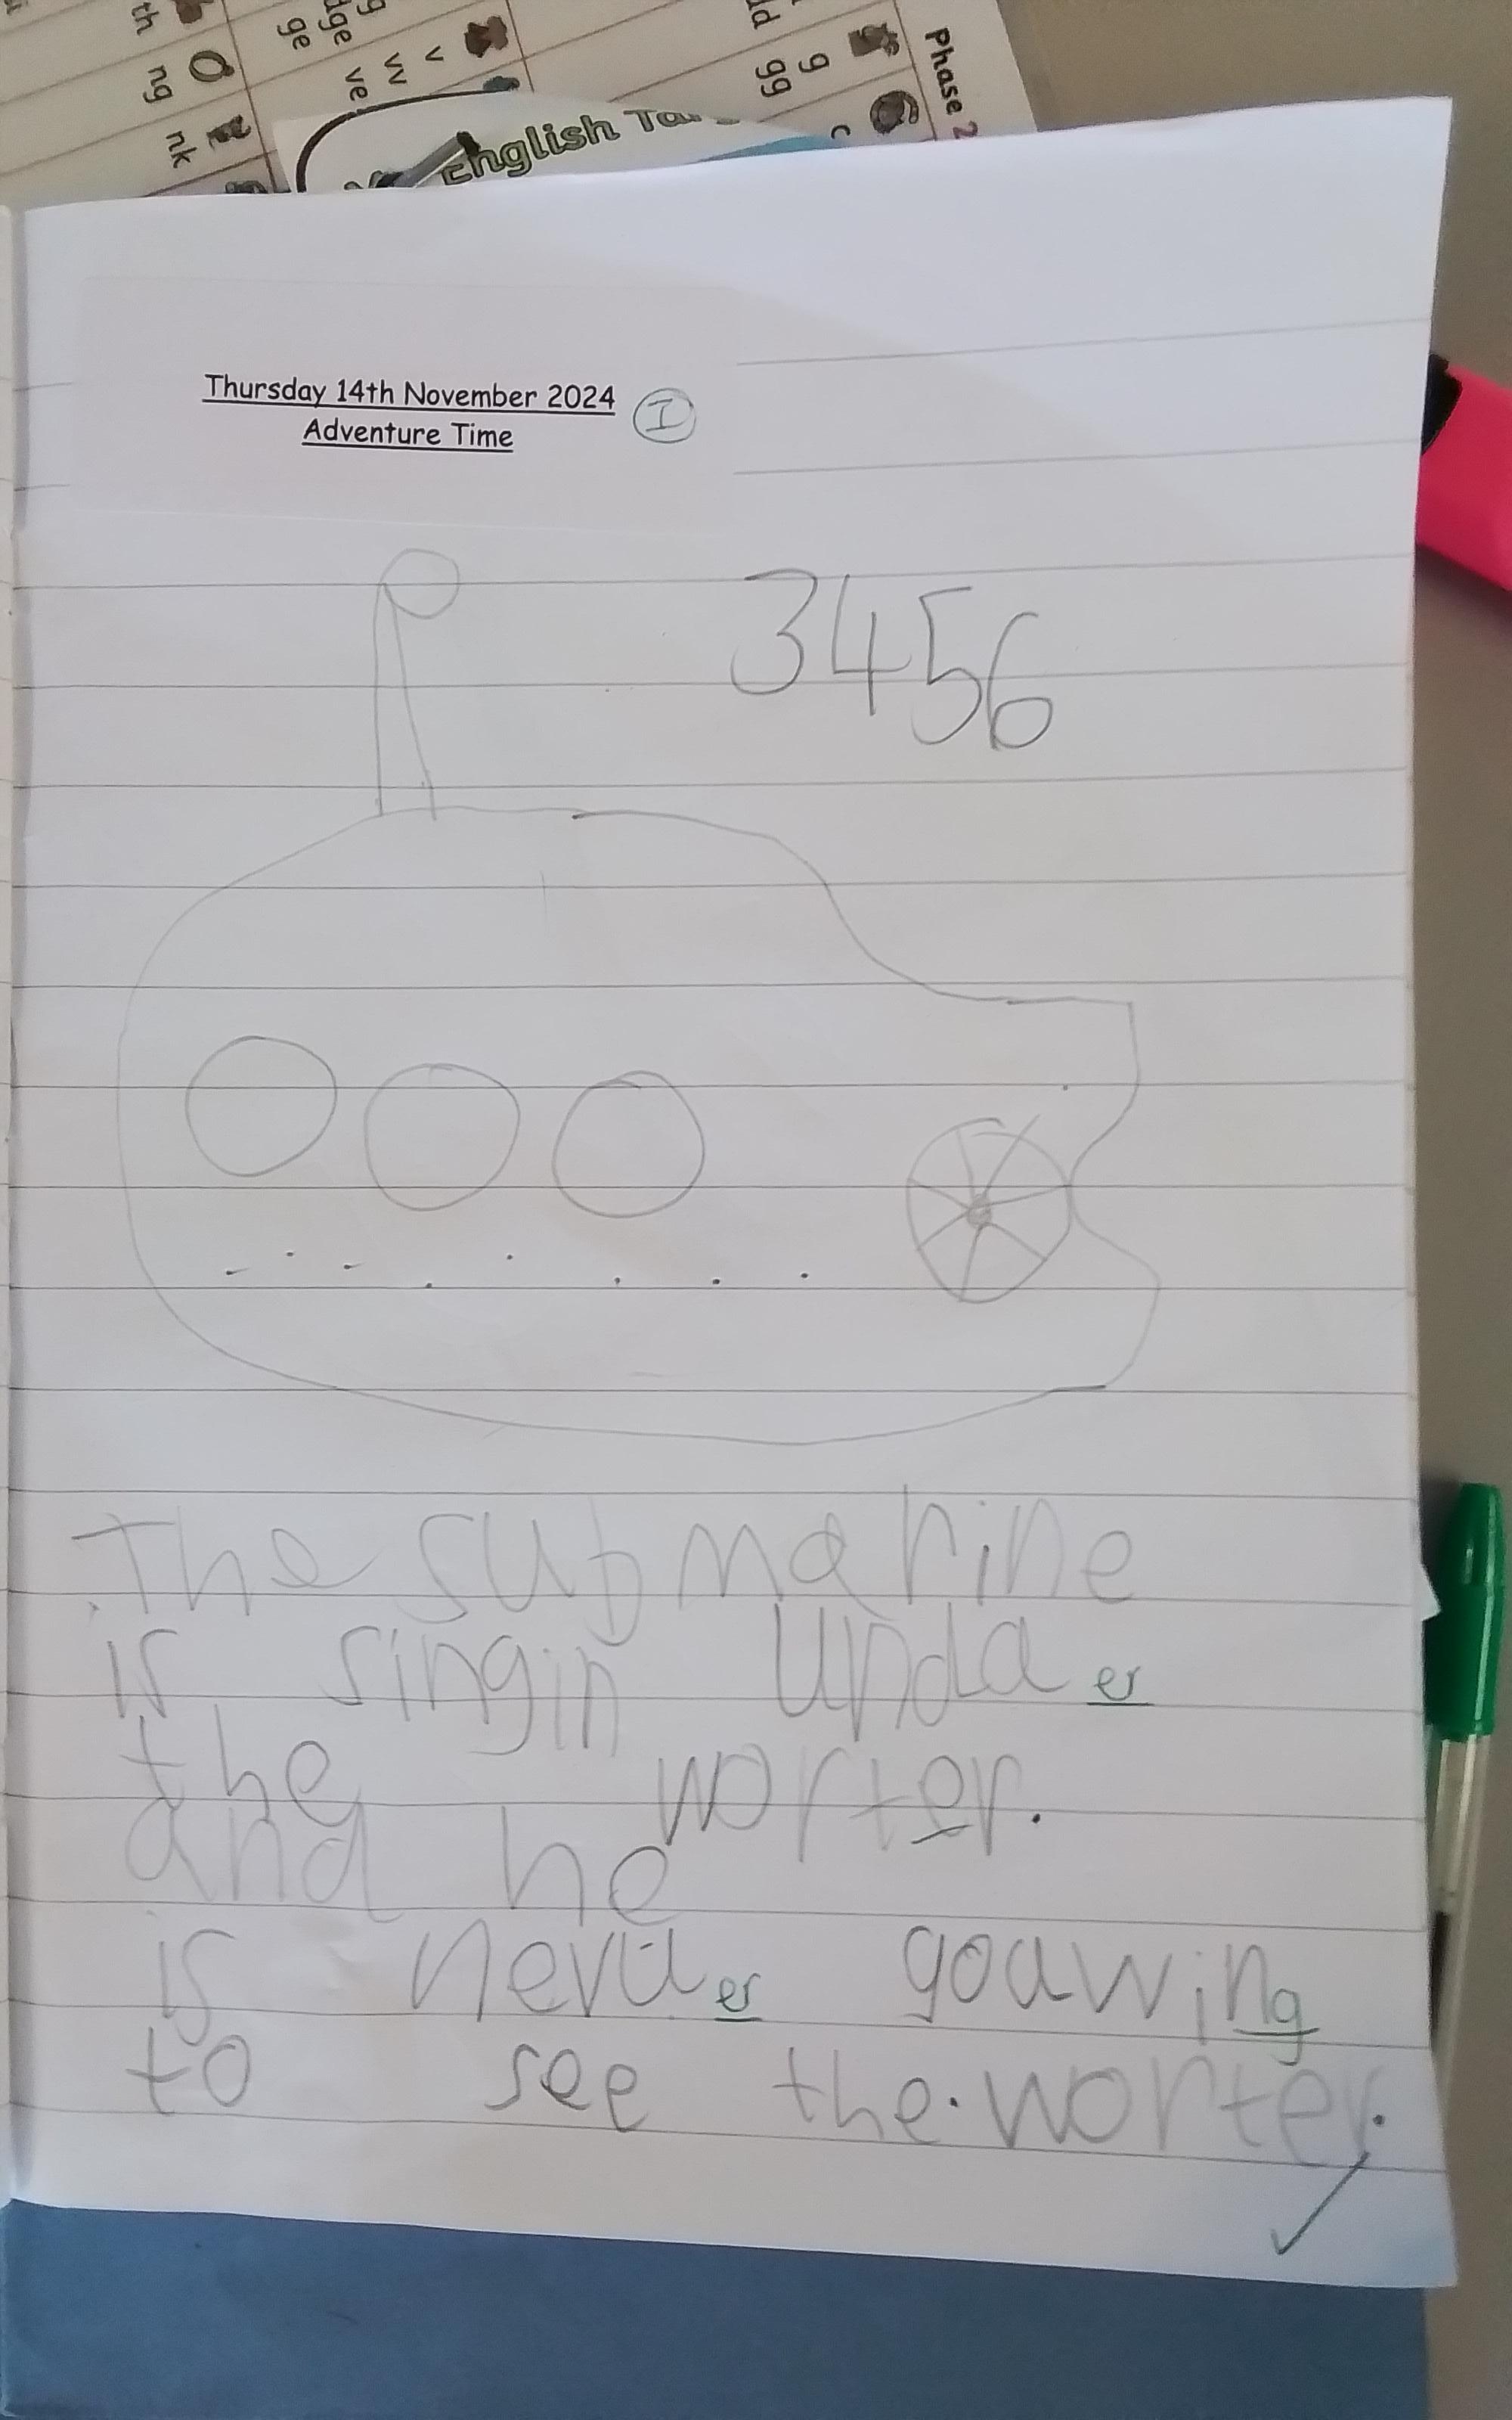 Phase 2
g
gg
c
v
vv
ve
dge
ge
th
ng
nk
English
Thursday 14th November 2024
Adventure Time
I
3456
The submarine
is singin unda er
the worter.
and he
is neva er goawing
to see the. worter.